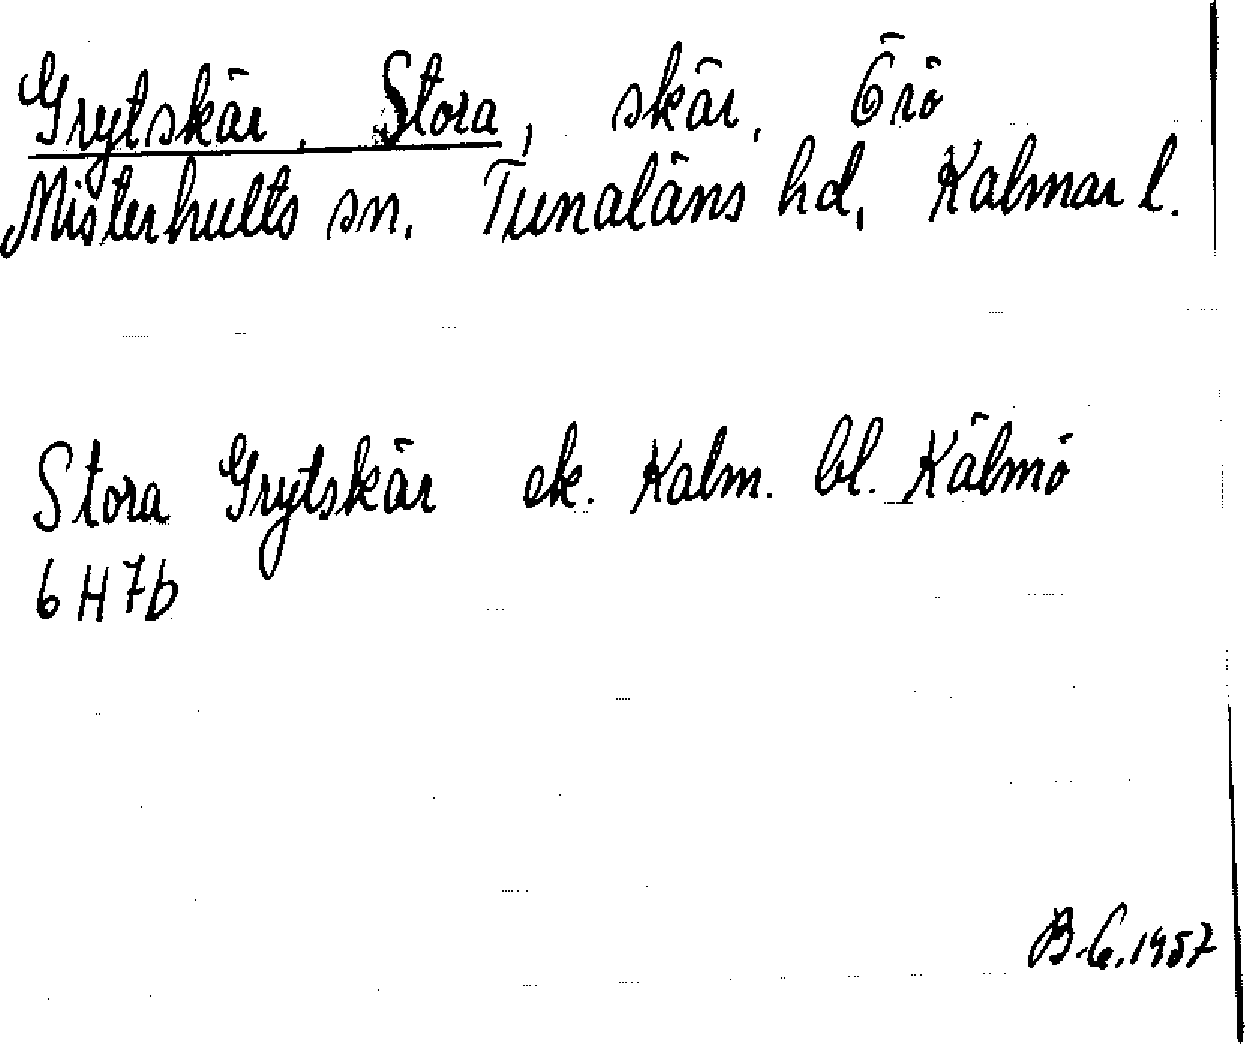 Grytskär, Stora, skär, Örö
Misterhults sn. Tunaläns hd, Kalmar l.
Stora Grytskär ek. Kalm. bl. Kälmö
6 H 7b
B.G. 1957